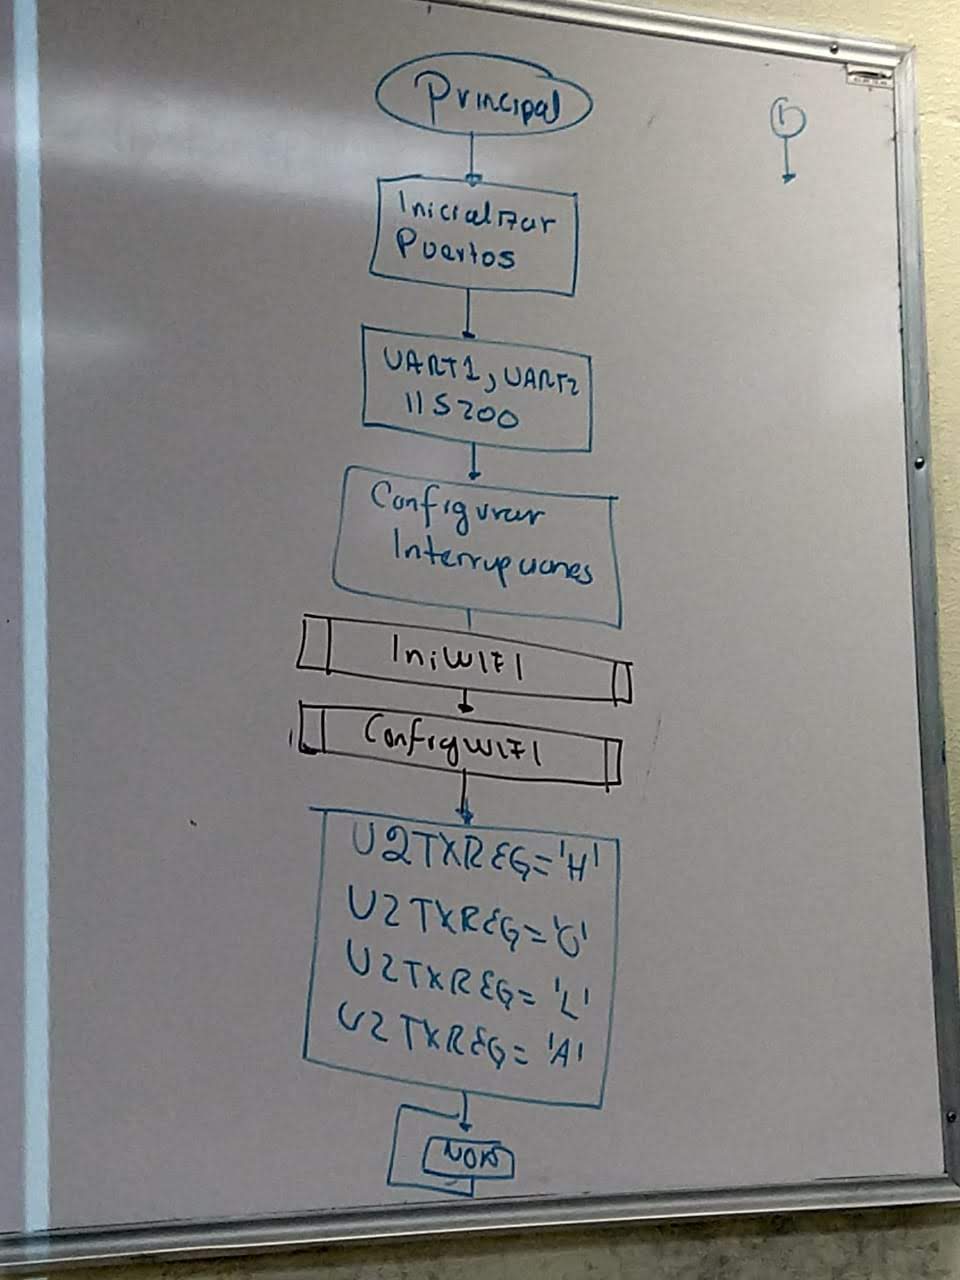 Principal
Inicializar
Puertos
UART1, UART2
115200
Configurar
Interrupciones
IniWIFI
ConfigWIFI
U2TXREG='H'
U2TXREG='O'
U2TXREG='L'
U2TXREG='A'